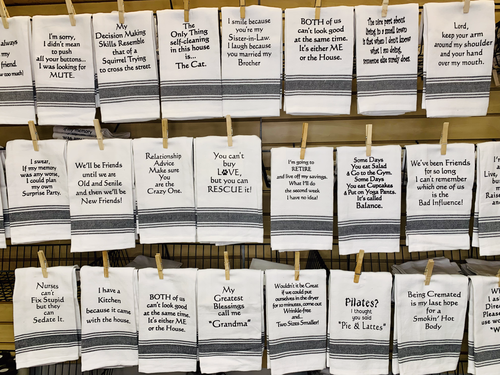 always
my
friend.
w too much)
I'm sorry,
I didn't mean
to push
all your buttons...
I was looking for
MUTE.
My
Decision Making
Skills Resemble
that of a
Squirrel Trying
to cross the street
The
Only Thing
self-cleaning
in this house
is...
The Cat.
I smile because
you're my
Sister-in-Law.
I laugh because
you married my
Brother
BOTH of us
can't look good
at the same time.
It's either ME
or the House.
The nice part about
living in a small town
is that when I don't know
what I'm doing,
someone else surely does.
Lord,
keep your
arm
around my shoulder
and your hand
over my mouth.
I swear,
If my memory
was any worse,
I could plan
my own
Surprise Party.
We'll be Friends
until we are
Old and Senile
and then we'll be
New Friends!
Relationship
Advice
Make sure
You
are the
Crazy One.
You can't
buy
LOVE,
but you can
RESCUE it!
I'm going to
RETIRE
and live off my savings.
What I'll do
the second week
I have no idea!
Some Days
You eat Salad
& Go to the Gym.
Some Days
You eat Cupcakes
& Put on Yoga Pants.
It's called
Balance.
We've been Friends
for so long
I can't remember
which one of us
is the
Bad Influence!
Live,
bu
Raise
and
Nurses
can't
Fix Stupid
but they
can
Sedate It.
I have a
Kitchen
because it came
with the house.
BOTH of us
can't look good
at the same time.
It's either ME
or the House.
My
Greatest
Blessings
call me
"Grandma"
Wouldn't it be Great
if we could put
ourselves in the dryer
for 10 minutes, come out
Wrinkle-free
and...
Two Sizes Smaller!
Pilates?
I thought
you said
"Pie & Lattes"
Being Cremated
is my last hope
for a
Smokin' Hot
Body
When
ask
Dire
Please
use wo
"W